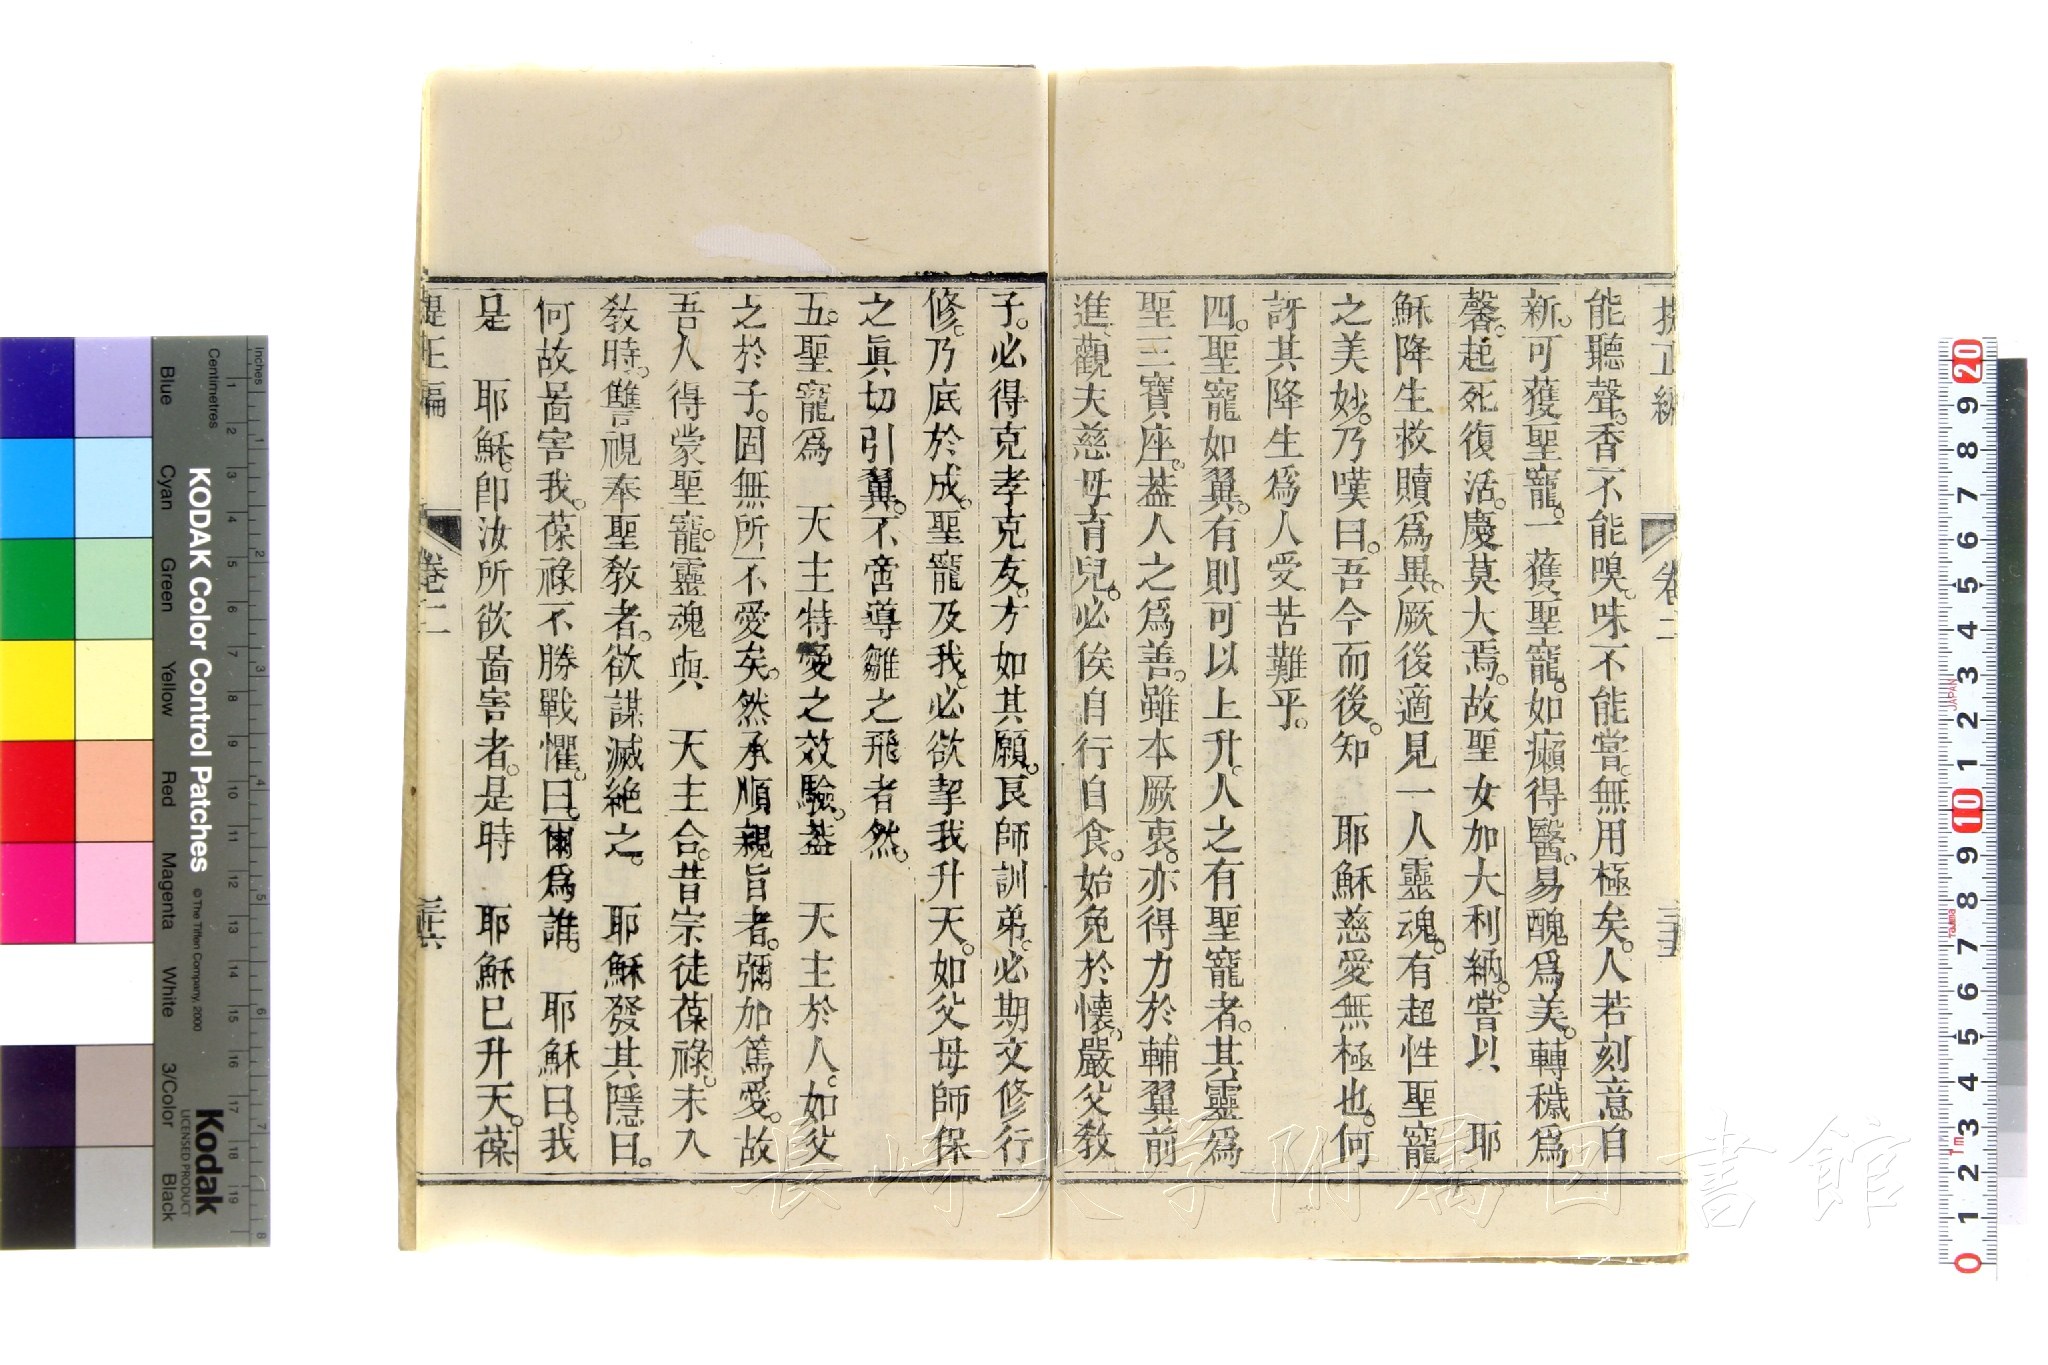 提正編 卷二 三十五
能聽聲。香不能嗅。味不能嘗。無用極矣。人若刻意自
新。可獲聖寵。一獲聖寵。如癩得醫。易醜爲美。轉穢爲
馨。起死復活。慶莫大焉。故聖女加大利納。嘗以 耶
穌降生救贖爲異。厥後適見一人靈魂。有超性聖寵
之美妙。乃嘆曰。吾今而後。知 耶穌慈愛無極也。何
訝其降生爲人愛苦難乎。
四。聖寵如翼。有則可以上升。人之有聖寵者。其靈爲
聖三寶座。葢人之爲善。雖本厥衷。亦得力於輔翼前
進。觀夫慈母育兒。必俟自行自食。始免於懷。嚴父教
子。必得克孝克友。方如其願。良師訓弟。必期文修行
修。乃底於成。聖寵及我。必欲挈我升天。如父母師保
之眞切引翼。不啻導雛之飛者然。
五。聖寵爲 天主特愛之效驗。葢 天主於人。如父
之於子。固無所不愛矣。然承順親旨者。彌加篤愛。故
吾人得蒙聖寵。靈魂與 天主合。昔宗徒葆祿。未入
教時。讐視奉聖教者。欲謀滅絶之。 耶穌發其隱曰。
何故啚害我。葆祿不勝戰懼。曰。爾爲誰。 耶穌曰。我
是 耶穌。卽汝所欲啚害者。是時 耶穌巳升天。葆
提正編 卷二 三十六
KODAK Color Control Patches
© The Tiffen Company, 2000
Kodak
LICENSED PRODUCT
Inches
Centimetres
Blue Cyan Green Yellow Red Magenta White 3/Color Black
長崎大学附属図書館
JAPAN